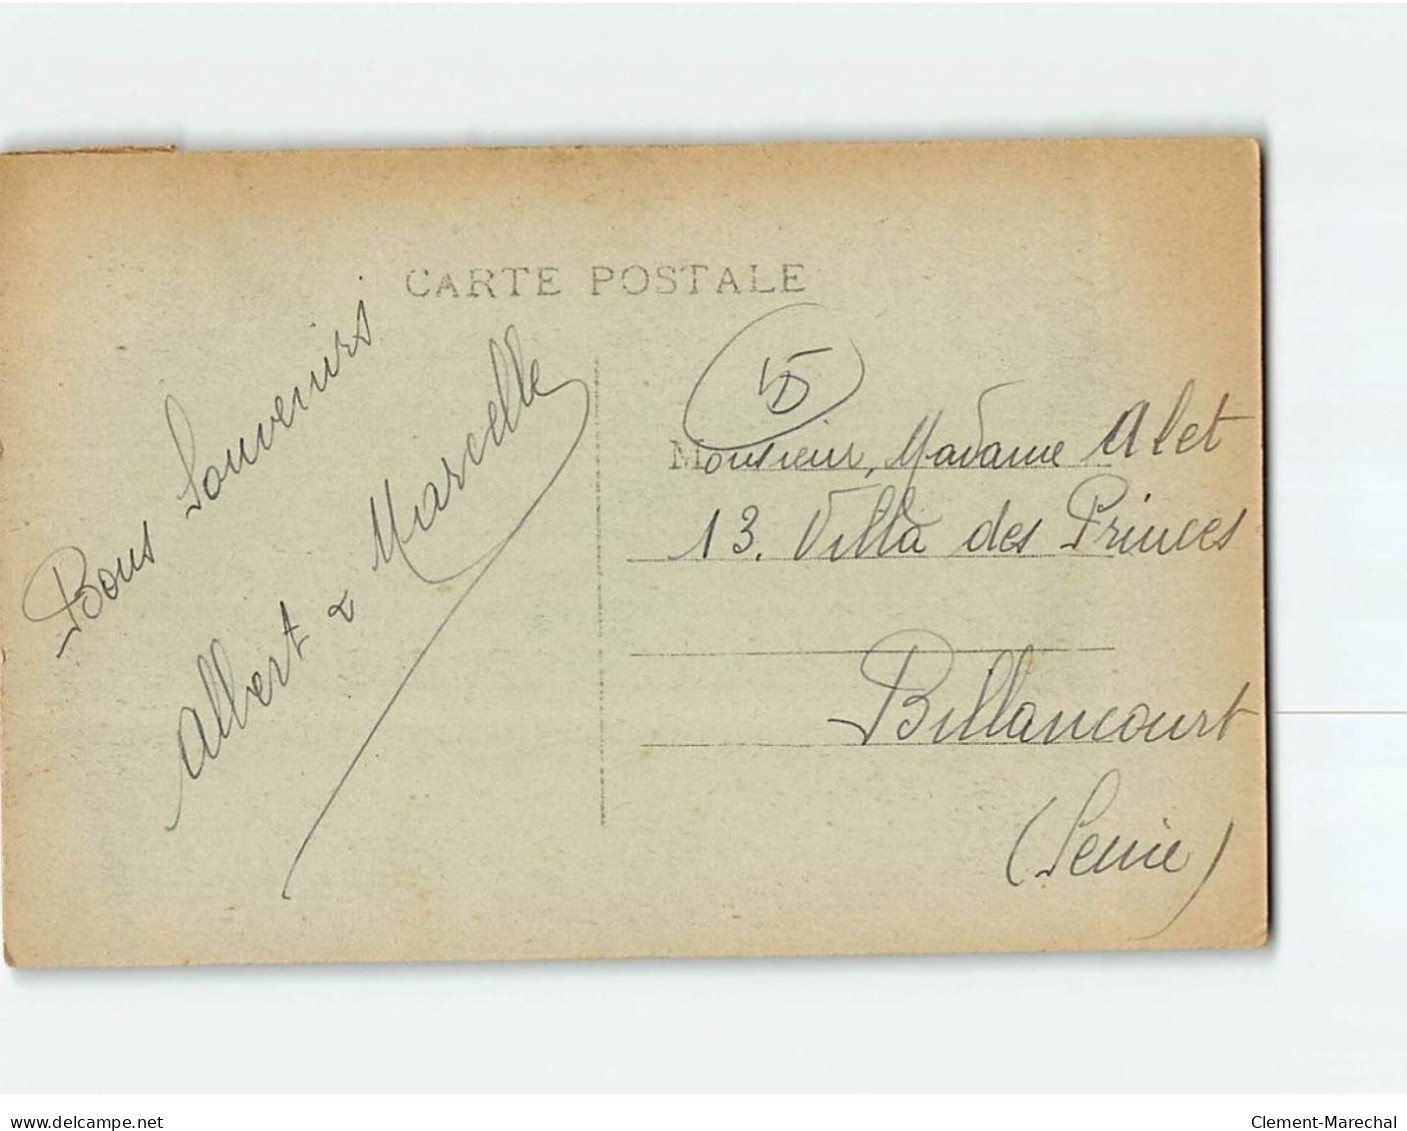 CARTE POSTALE
Bons Souvenirs
Albert & Marcelle
Monsieur, Madame Alet
13. Villa des Princes
Billancourt
(Seine)
www.delcampe.net
Clement-Marechal